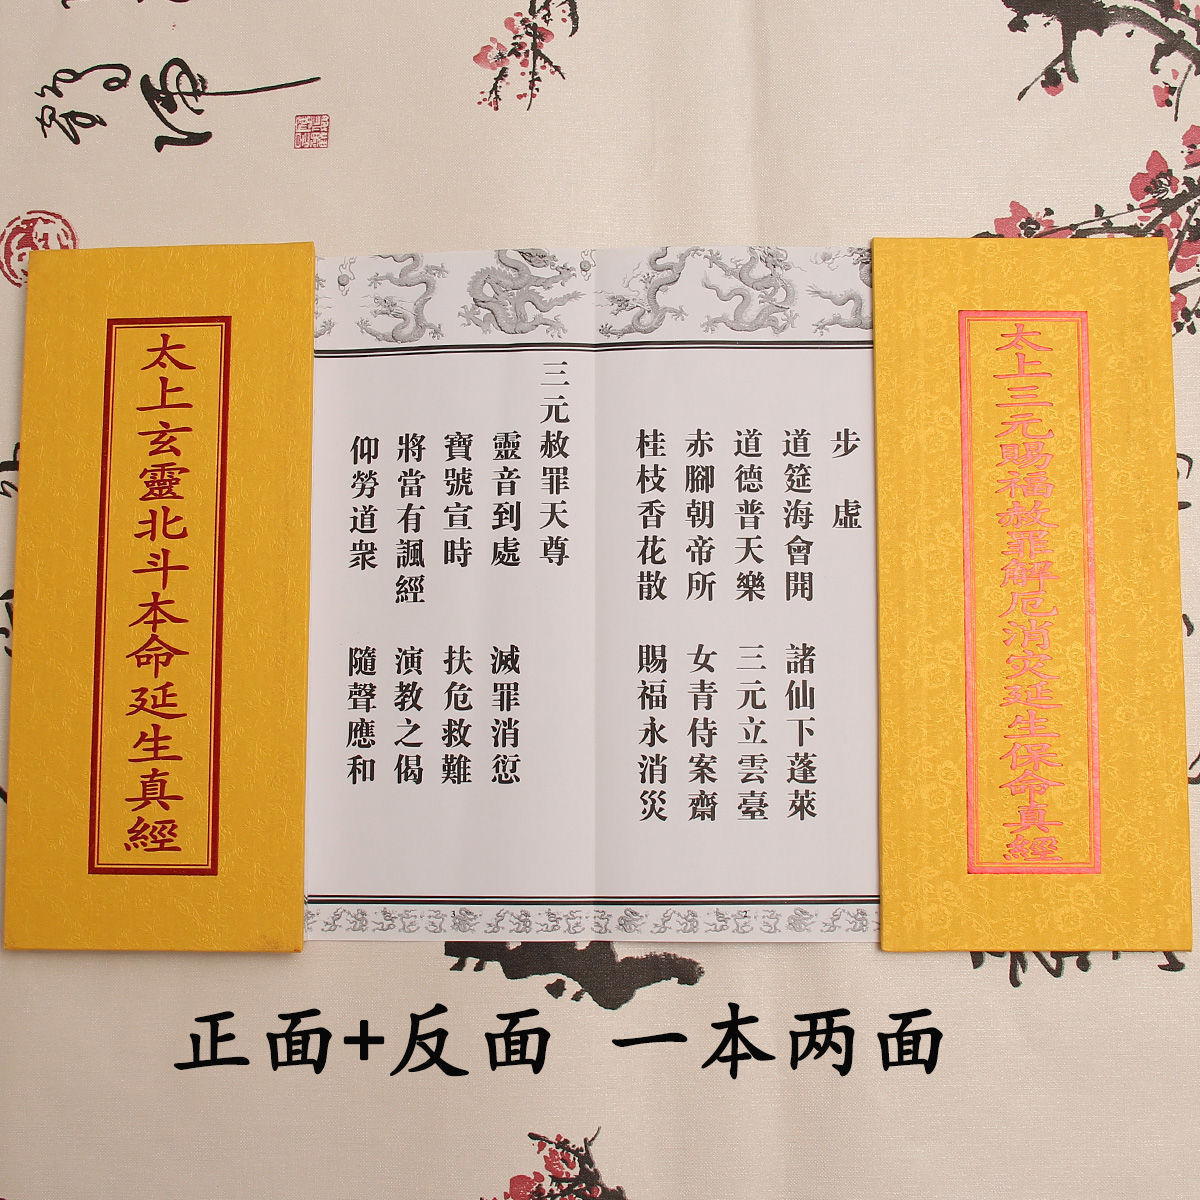 太上三元賜福赦罪解厄消灾延生保命真經
步虛
道筵海會開 諸仙下蓬萊
道德普天樂 三元立雲臺
赤腳朝帝所 女青侍案齋
桂枝香花散 賜福永消災
2
三元赦罪天尊
靈音到處 滅罪消愆
寶號宣時 扶危救難
將當有諷經 演教之偈
仰勞道衆 隨聲應和
3
太上玄靈北斗本命延生真經
正面+反面 一本两面